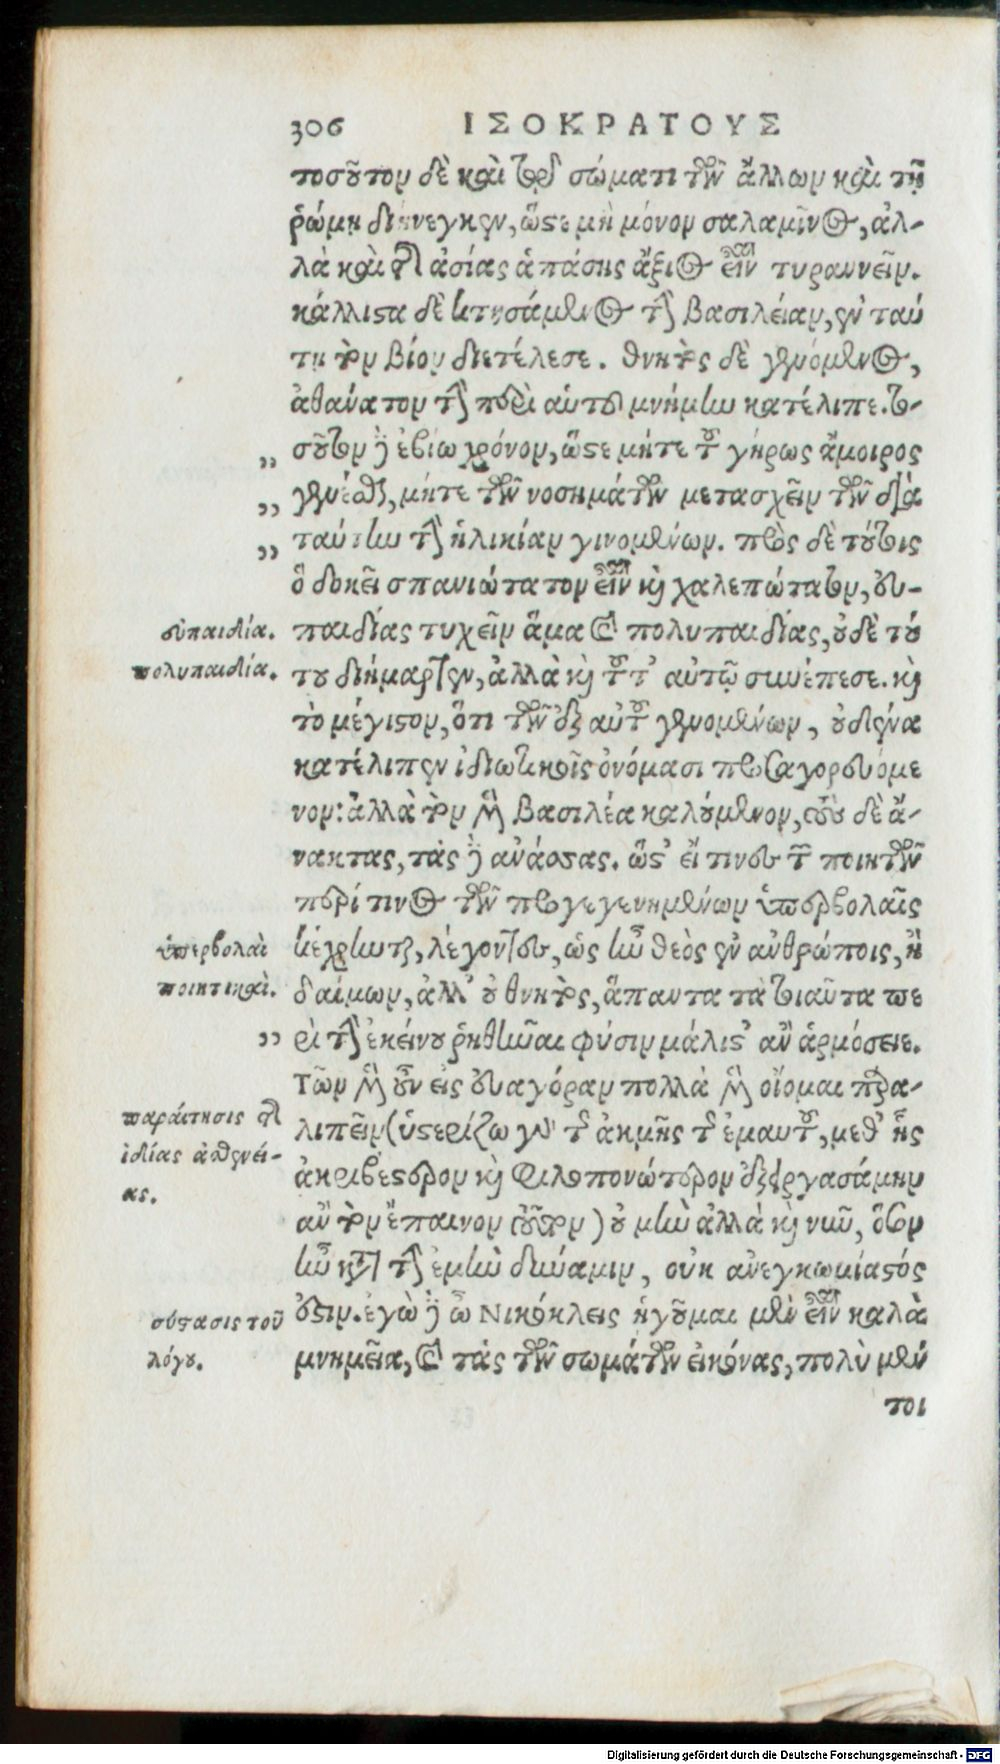 306 ΙΣΟΚΡΑΤΟΥΣ
τοσοῦτον δὲ καὶ τῷ σώματι τῶν ἄλλων καὶ τῇ
ῥώμῃ διήνεγκεν, ὥστε μὴ μόνον σαλαμῖνος, ἀλ-
λὰ καὶ τῆς ἀσίας ἁπάσης ἄξιος εἶναι τυραννεῖν.
κάλλιστα δὲ κτησάμενος τὴν βασιλείαν, ἐν ταύ
τῃ τὸν βίον διετέλεσε. θνητὸς δὲ γενόμενος,
ἀθάνατον τὴν περὶ αὑτοῦ μνήμην κατέλιπε. το-
„ σοῦτον δὲ ἐβίω χρόνον, ὥστε μήτε τοῦ γήρως ἄμοιρος
„ γενέσθαι, μήτε τῶν νοσημάτων μετασχεῖν τῶν διὰ
„ ταύτην τὴν ἡλικίαν γινομένων. πρὸς δὲ τούτοις
ὃ δοκεῖ σπανιώτατον εἶναι καὶ χαλεπώτατον, εὐ-
εὐπαιδία.
παιδίας τυχεῖν ἅμα καὶ πολυπαιδίας, οὐδὲ τού
πολυπαιδία.
του διήμαρτεν, ἀλλὰ καὶ τοῦτ' αὐτῷ συνέπεσε. καὶ
τὸ μέγιστον, ὅτι τῶν ἐξ αὐτοῦ γενομένων, οὐδένα
κατέλιπεν ἰδιωτικοῖς ὀνόμασι προσαγορευόμε
νον: ἀλλὰ τὸν μὲν βασιλέα καλούμενον, τοὺς δὲ ἄ-
νακτας, τὰς δὲ ἀνάσσας. ὥστ' εἴ τινες τῶν ποιητῶν
περί τινος τῶν προγεγενημένων ὑπερβολαῖς
ὑπερβολαὶ
κέχρηνται, λέγοντες, ὡς ἦν θεὸς ἐν ἀνθρώποις, ἢ
ποιητικαὶ.
δαίμων, ἀλλ' οὐ θνητὸς, ἅπαντα τὰ τοιαῦτα πε
„ ρὶ τὴν ἐκείνου ῥηθῆναι φύσιν μάλιστ' ἂν ἁρμόσειε.
Τῶν μὲν οὖν εἰς εὐαγόραν πολλὰ μὲν οἴομαι παρα-
παραίτησις τῆς
λιπεῖν (ὑστερίζω γὰρ τῆς ἀκμῆς τῆς ἐμαυτοῦ, μεθ' ἧς
ἰδίας ἀσθενεί-
ἀκριβέστερον καὶ φιλοπονώτερον ἐξειργασάμην
ας.
ἂν τὸν ἔπαινον τοῦτον) οὐ μὴν ἀλλὰ καὶ νῦν, ὅσον
ἦν κατὰ τὴν ἐμὴν δύναμιν, οὐκ ἀνεγκωμίαστός
σύστασις τοῦ
ἐστιν. ἐγὼ δὲ ὦ Νικόκλεις ἡγοῦμαι μὲν εἶναι καλὰ
λόγου.
μνημεῖα, καὶ τὰς τῶν σωμάτων εἰκόνας, πολὺ μέν
τοι
Digitalisierung gefördert durch die Deutsche Forschungsgemeinschaft - DFG